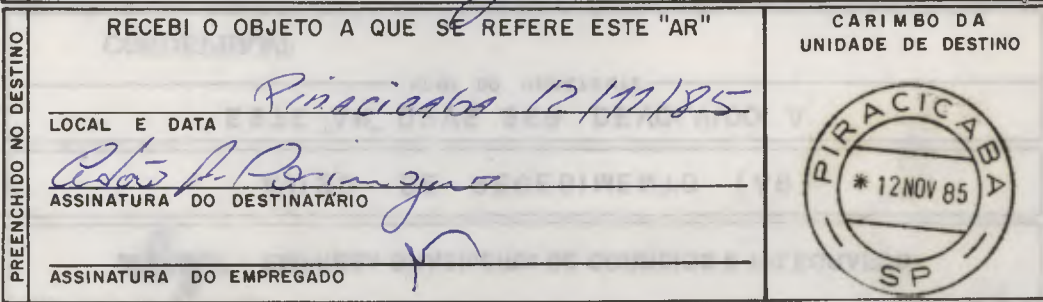 PREENCHIDO NO DESTINO
RECEBI O OBJETO A QUE SE REFERE ESTE "AR"
Piracicaba 12/11/85
LOCAL E DATA
ASSINATURA DO DESTINATÁRIO
ASSINATURA DO EMPREGADO
CARIMBO DA
UNIDADE DE DESTINO
PIRACICABA
* 12 NOV 85
SP